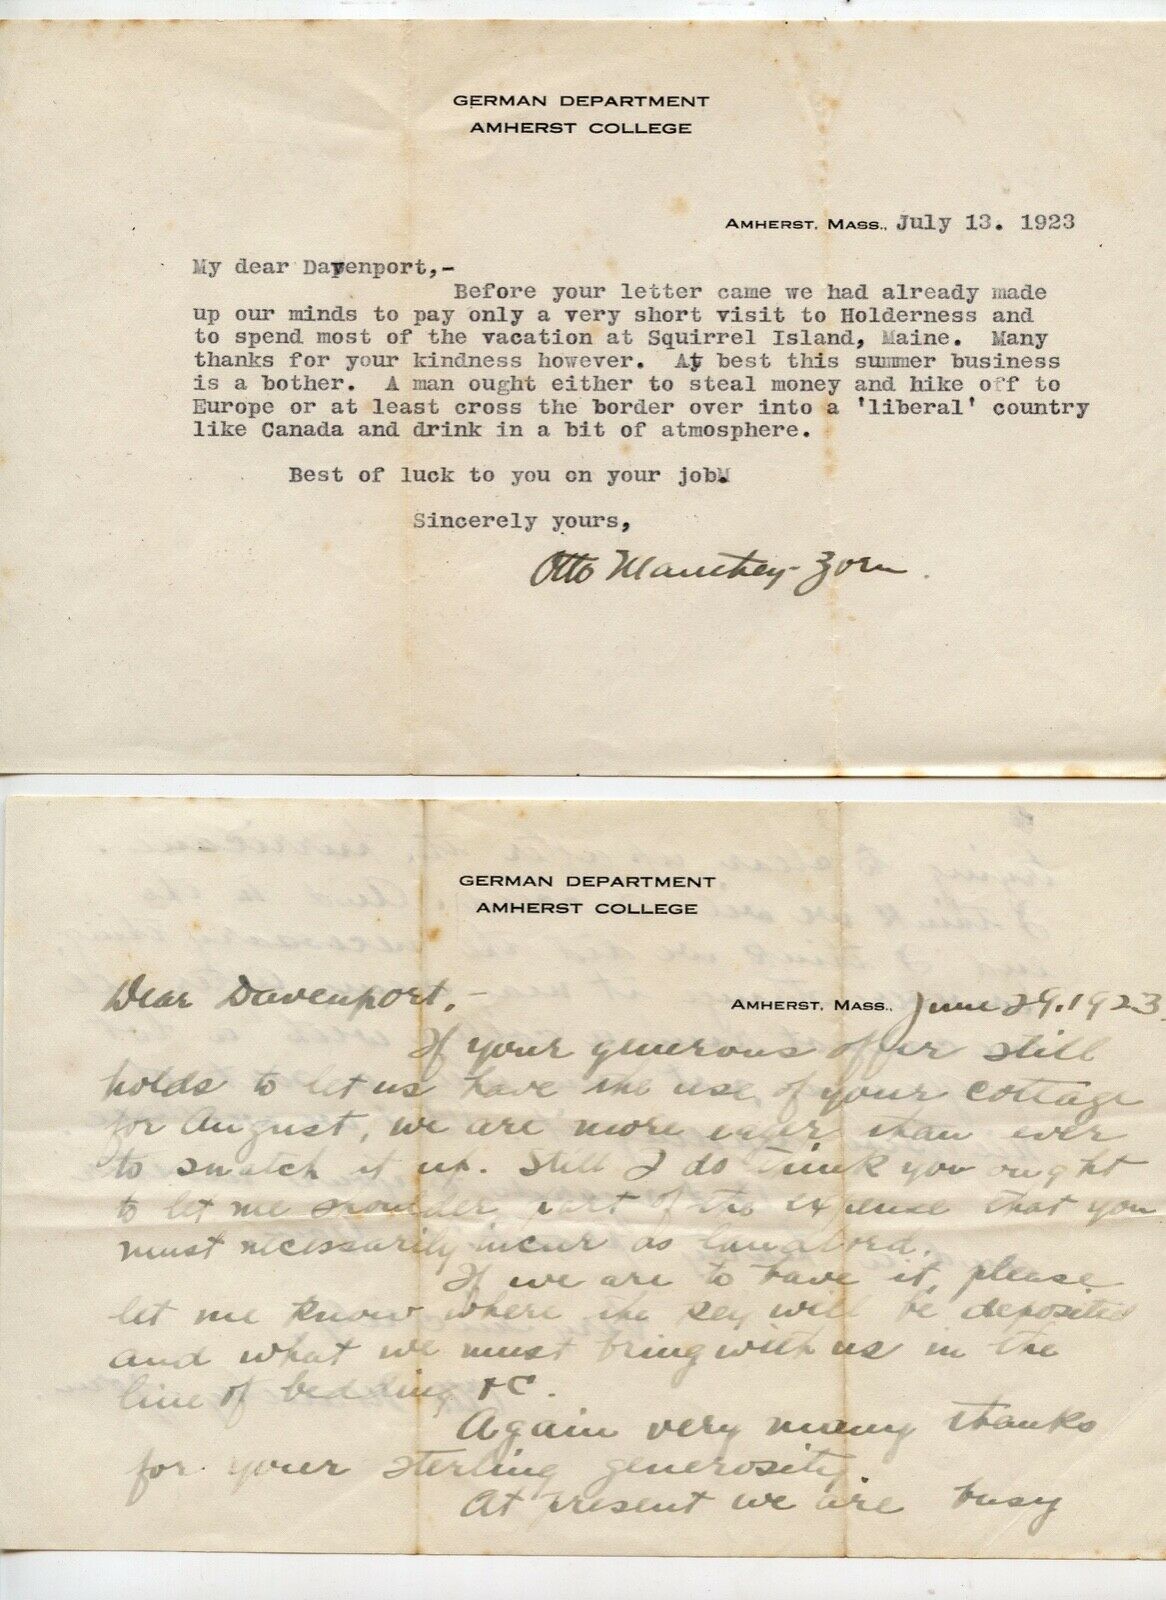 GERMAN DEPARTMENT
AMHERST COLLEGE
AMHERST, MASS., July 13. 1923
My dear Davenport,-
Before your letter came we had already made
up our minds to pay only a very short visit to Holderness and
to spend most of the vacation at Squirrel Island, Maine. Many
thanks for your kindness however. At best this summer business
is a bother. A man ought either to steal money and hike off to
Europe or at least cross the border over into a 'liberal' country
like Canada and drink in a bit of atmosphere.
Best of luck to you on your job.
Sincerely yours,
Otto Manthey-Zorn.
GERMAN DEPARTMENT
AMHERST COLLEGE
Dear Davenport,-
AMHERST, MASS., June 29. 1923.
If your generous offer still
holds to let us have the use of your cottage
for August, we are more eager than ever
to snatch it up. Still I do think you ought
to let me shoulder part of the expense that you
must necessarily incur as landlord.
If we are to have it, please
let me know where the key will be deposited
and what we must bring with us in the
line of bedding &c.
Again very many thanks
for your sterling generosity.
At present we are busy